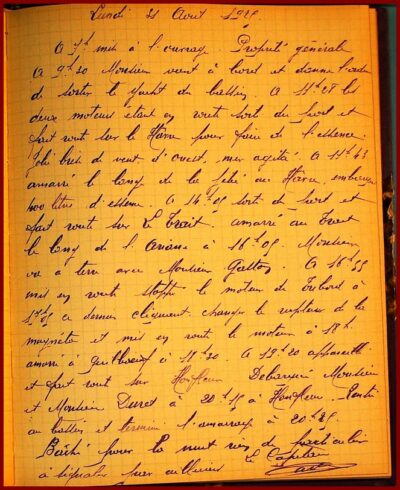 Lundi 21 Aout 19
A 7h mis à l'ouvrage. Propreté générale
A 9h30 Monsieur vient à bord et donne l'ordre
de sortir le yacht du bassin. A 11h28 les
deux moteurs étant en route sorti du port et
fait route sur le Havre pour faire de l'essence.
Joli brise de vent d'ouest, mer agitée. A 11h43
amarré le long de la jetée au Havre embarqué
400 litres d'essence. A 14h05 sorti du port et
fait route sur Le Trait. amarré au Trait
le long de l' à 16h05. Monsieur
va à terre avec Monsieur A 16h55
mis en route stoppé le moteur de Tribord à
17h05 ce dernier changer le rupteur de la
magnéto et mis en route le moteur à 18h.
amarré à Quillebeuf à 18h30. A 19h20 appareillé
et fait route sur Honfleur Debarqué Monsieur
et Monsieur Duret à 20h15 à Honfleur. Rentré
au bassin et terminé l'amarrage à 20h45.
pour la nuit rien de particulier
à signaler par ailleurs
Le Capitaine